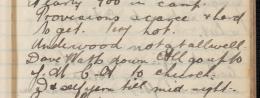 nearly 700 in camp.
Provisions scarce & hard
to get. Very hot.
Underwood not at all well.
Dave Watt down. Still go up to
Y.M.C.A. to church.
till mid night.